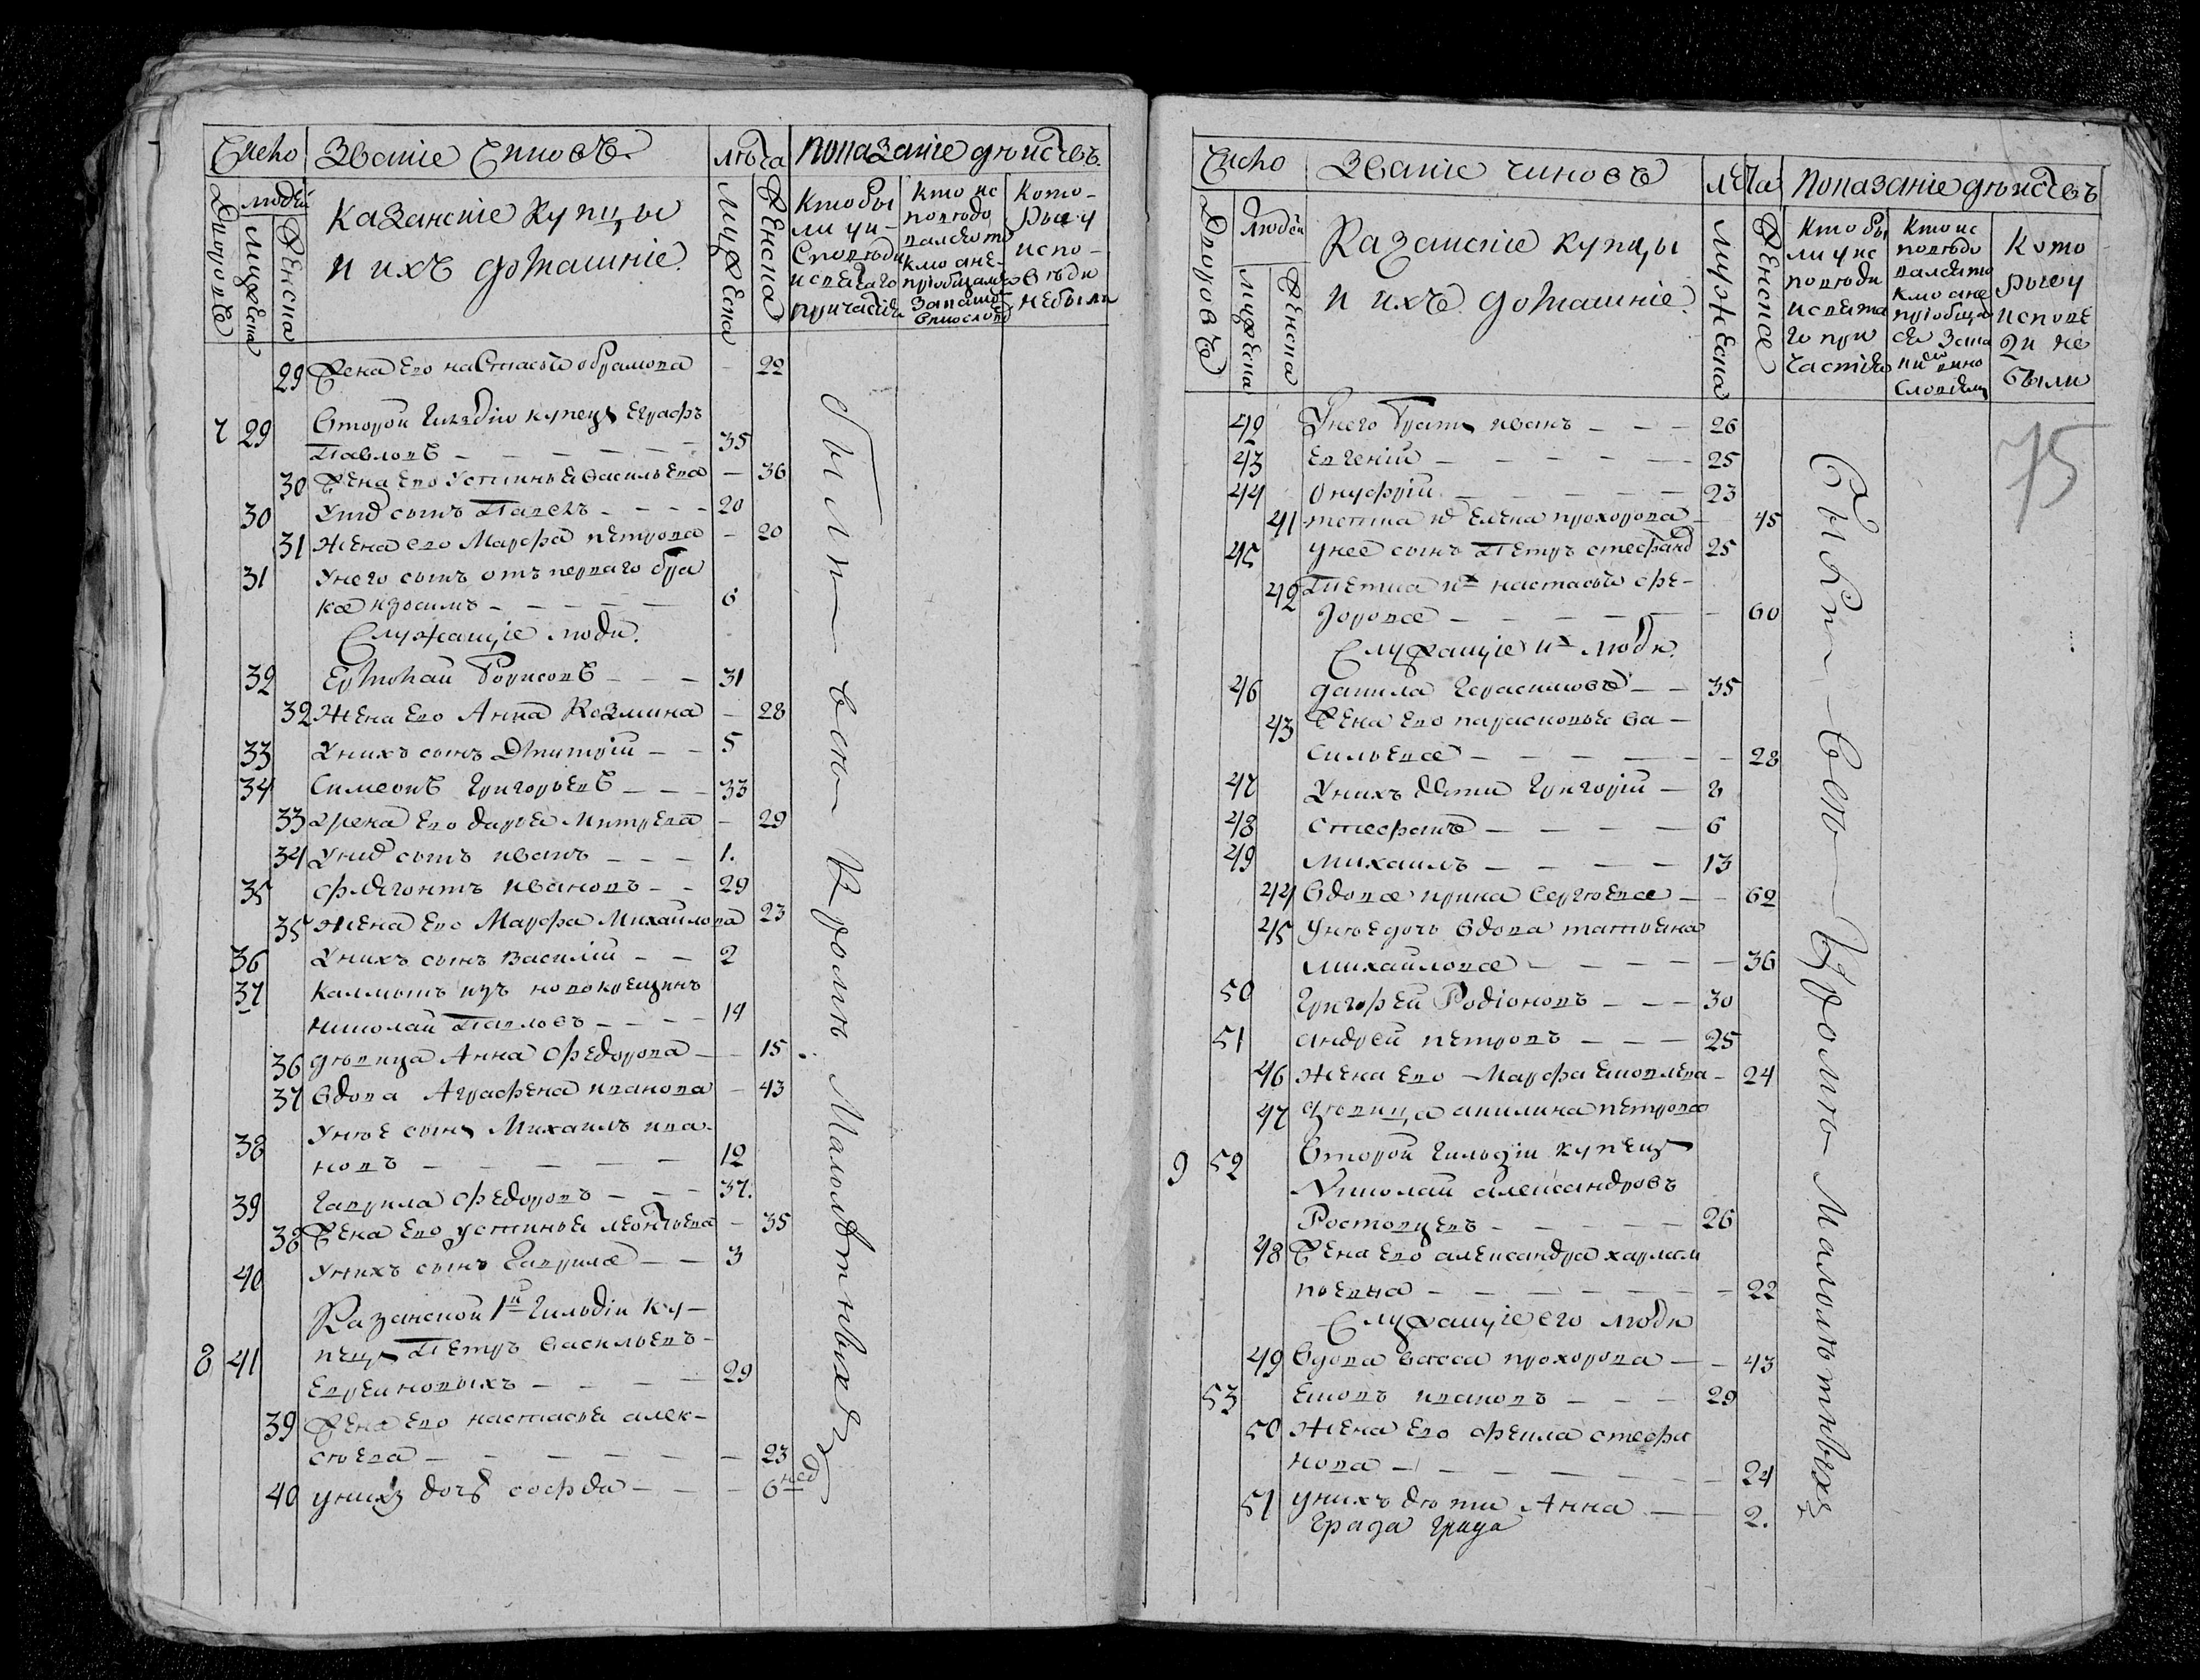 Число Званіе Чиновъ Лѣта Показаніе дѣйствъ
Дворовъ людей Мужеска Женска
Казанскіе Купцы
и ихъ домашніе.
Мужеска Женска
Кто бы
ли у и-
сповѣди
и святаго
причастія
Кто ис
повѣдо
вался то
кмо а не
пріобщался
Кото-
рые у
испо-
вѣди
не были
29 Жена его настасья абрамова - 22
7 29 Второй Гильдіи купецъ Еграфъ
Павловъ - 35
30 Жена его Устинья Васильева - 36
30 У нихъ сынъ Павелъ - 20
31 Жена его Марфа петрова - 20
31 У него сынъ отъ перваго бра
ка Изосимъ - 6
Служащіе люди.
32 Ермолай Борисовъ - 31
32 Жена его Анна Козмина - 28
33 У нихъ сынъ Дмитрій - 5
34 Симеонъ Григорьевъ - 33
33 Жена его дарья Митрева - 29
34 У нихъ сынъ иванъ - 1.
35 флегонтъ ивановъ - 29
35 Жена его Марфа Михаилова 23
36 У нихъ сынъ василій - 2
37 Калмыкъ изъ новокрещенъ
николай Павловъ - 14
36 дѣвица Анна Федорова - 15
37 вдова Аграфена иванова - 43
38 У нее сынъ Михаилъ ива-
новъ - 12
39 Гаврила Федоровъ - 37.
38 Жена его устинья леонтьева - 35
40 У нихъ сынъ Гаврила - 3
Казанской 1й Гильдіи ку-
8 41 пецъ Петръ васильевъ
Евреиновыхъ - 29
39 Жена его настасья алек-
сѣева - 23
40 у нихъ дочь софья - 6 нед
были всѣ Кромѣ Малолѣтныхъ
Число Званіе чиновъ Лѣта Показаніе дѣйствъ
Дворовъ Людей Мужеска Женска
Казанскіе купцы
и ихъ домашніе.
Мужеска Женска
Кто бы
ли у ис
повѣди
и свята
го при
частія
Кто ис
повѣдо
вался то
кмо а не
пріобщал
ся
Кото
рые у
исповѣ
ди не
были
75
42 У него братъ иванъ - 26
43 Евгеній - 25
44 Онуфрій - 23
41 тетка их Елена прохорова 45
45 у нее сынъ Петръ стефанов 25
42 Тетка их настасья фе-
дорова - 60
Служащіе их люди.
46 данила Герасимовъ - 35
43 Жена его парасковья ва-
сильева - 28
47 У нихъ дѣти Григорій - 8
48 Стефанъ - 6
49 михаилъ - 13
44 вдова ирина Сергѣева - 62
45 У нее дочь вдова татьяна
михаилова - 36
50 Григорей Родіоновъ - 30
51 андрей петровъ - 25
46 Жена его Марфа Яковлева - 24
47 дѣвица акилина петрова
9 52 Второй Гильдіи купецъ
Николай александровъ
Ростовцевъ - 26
48 Жена его александра харлам
повна - 22
Служащіе его люди
49 вдова васса прохорова - 43
53 Яковъ ивановъ - 29
50 Жена его Фекла стефа
нова - 24
51 у нихъ дѣти Анна - 2.
Града
Были всѣ Кромѣ Малолѣтныхъ